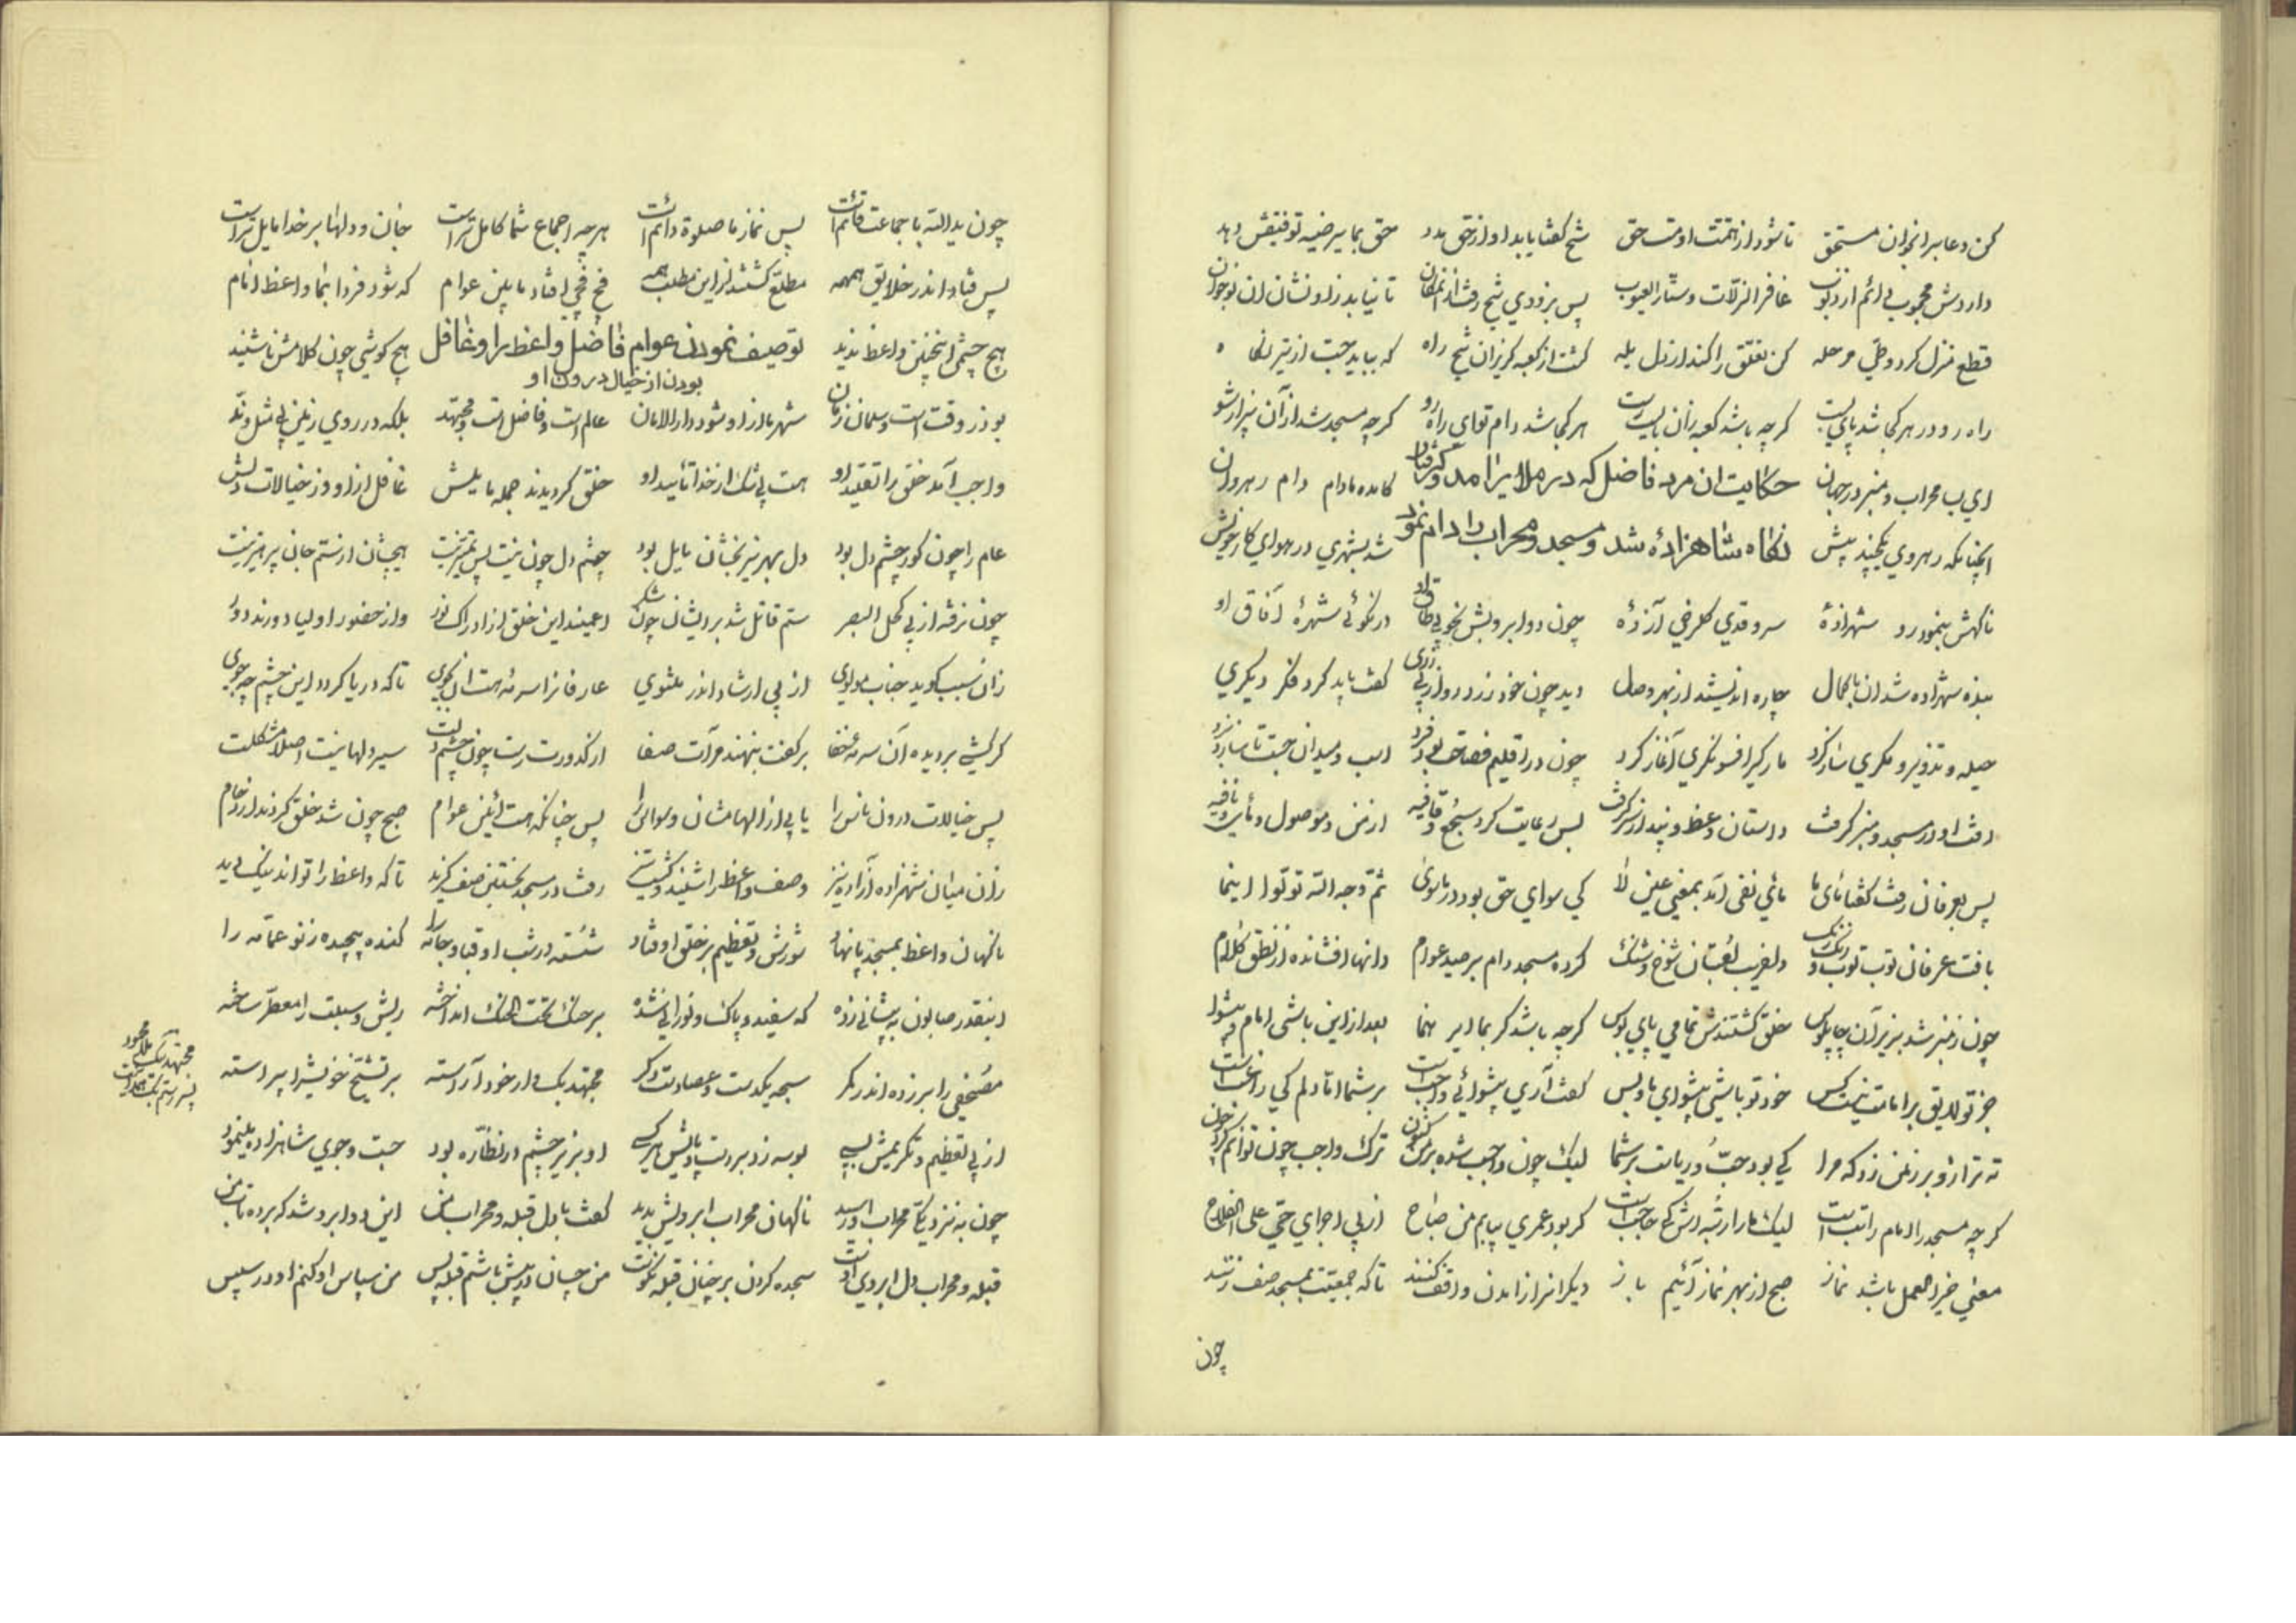 کن دعا بر انجوان مستحق تا شود از همتت او مست حق شیخ کفتا یابد او از حق مدد حق بما یرضیه توفیقش دهد
داردش محجوب دائم از ذنوب غافر الزلات و ستار العیوب پس بزودی شیخ رفت از انمکان تا نیابد زو نشان ان نوجوان
قطع منزل کرد و طی مرحله کن تعلق را کند از دل یله کشت از کعبه کریزان شیخ راه که بباید جست از تیر نکاه
راه رو در هر کجا شد پای بست کرچه باشد کعبه زان باید رست هر کجا شد دام تو ای راه رو کرچه مسجد شد از آن بیزار شو
ای بسا محراب و منبر در جهان کامده مادام دام رهروان
حکایت ان مرد فاضل که در ملایر امد و کرفتار
نکاه شاهزاده شد و مسجد و محراب را دام نمود
انچنانکه رهروی یکچند پیش شد بشهری در هوای کار خویش
ناکهش بنمود رو شهزادۀ سرو قدی کلرخی آزادۀ چون دو ابرویش بخوبی طاق او در نکوئی شهرۀ آفاق او
بنده شهزاده شد ان باکمال چاره اندیشید از بهر وصال دید چون خود زرد رو از بی زری کفت باید کرد فکر دیکری
حیله و تذویر و مکری ساز کرد مارکیر افسونکری آغاز کرد چون در اقلیم فصاحت بود فرد اسب و میدان جست تا سازد نبرد
رفت او در مسجد و منبر کرفت داستان وعظ و پند از سر کرفت بس رعایت کرد سجع و قافیه از من و موصول و مأی نافیه
پس بعرفان رفت کفتا مای ما مأی نفی آمد بمعنی عین لا کی سوای حق بود در ماسوی ثم وجه الله تولوا اینما
بافت عرفان توب توب و رنک رنک دلفریب لعبتان شوخ و شنک کرده مسجد دام بر صید عوام دانها افشانده از نطق کلام
چون ز منبر شد بزیر آن چاپلوس خلق کشتندش تمامی پای بوس کرچه باشد کر بما امر هنما بعد از این باشی امام و پیشوا
جز تو لایق بر امامت نیست کس خود تو باشی پیشوای ما و بس کفت آری پیشوائی واجب است بر شما اما دلم کی راغب است
نه ترازو بر زمین زد که مرا کی بود حب ریاست بر شما لیک چون واجب شده بر من کنون ترک واجب چون توانم کرد چون
کرچه مسجد را امام راتب است لیک ما را رشد دانش حاجب است کر بود عمری بیایم من صباح از پی اجرای حی علی الفلاح
معنی خیر العمل باشد نماز صبح از بهر نماز آئیم باز دیکرانرا زامدن واقف کنند تا که جمعیت بمسجد صف زنند
چون
چون یدالله با جماعت قائم است پس نماز ما صلوة دائم است هر چه اجماع شما کامل تر است جان و دلها بر خدا مایل تر است
پس فتاد اندر خلایق همهمه مطلع کشتند از این مطلب همه فخ فخی افتاد مابین عوام که شود فردا بما واعظ امام
هیچ چشمی اینچنین واعظ ندید هیچ کوشی چون کلامش ناشنید
توصیف نمودن عوام فاضل واعظ را و غافل
بودن از خیال درون او
بوذر وقت است و سلمان زمان شهر ما از او شود دارالامان عالم است و فاضل است و مجتهد بلکه در روی زمین بی مثل و ند
واجب آمد خلق را تقلید او هست بی شک از خدا تأیید او خلق کردیدند جمله مایلش غافل از او وز خیالات دلش
عام را چون کور چشم دل بود دل بهر نیرنکشان مایل بود چشم دل چون نیست پس تمییز نیست هیچشان از ستم جان پرهیز نیست
زان سبب کوید جناب مولوی از پی ارشاد اندر مثنوی عارفانرا سرمه هست ان بجوی تا که دریا کردد این چشم چو جوی
پس خیالات درون ناس را پس چنانکه هست آئین عوام صبح چون شد خلق کردند ازدحام
زان میان شهزاده آزاده نیز وصف واعظ را شنید رفت در مسجد نخستین صف کزید تا که واعظ را تواند نیک دید
ناکهان واعظ بمسجد پا نهاد شورش و تعظیم بر خلق اوفتاد شسته در شب او قبا و جامه را کنده پیچیده ز نو عمامه را
اینقدر صابون به پیشانی زده که سفید و پاک و نورانی شده بر حنک تحت الحنک انداخته ریش و سبلت را معطر ساخته
مصحفی را بر زده اندر کمر سبحه یکدست و عصا دست دکر مجتهد یک در خود آراسته بر تشیخ خویش را پیراسته
از پی تعظیم و تکریمش بسی بوسه زد بر دست و پایش هر کسی او بزیر چشم در نظاره بود جست و جوی شاهزاده مینمود
چون به نزدیک محراب او رسید ناکهان محراب ابرویش بدید کفت با دل قبله و محراب من این دو ابرو شد که برده تاب من
قبله و محراب دل ابروی اوست سجده کردن بر چنان قبله نکوست من چسان در پیش باشم قبله پس من سپاس او کنم او در سپس